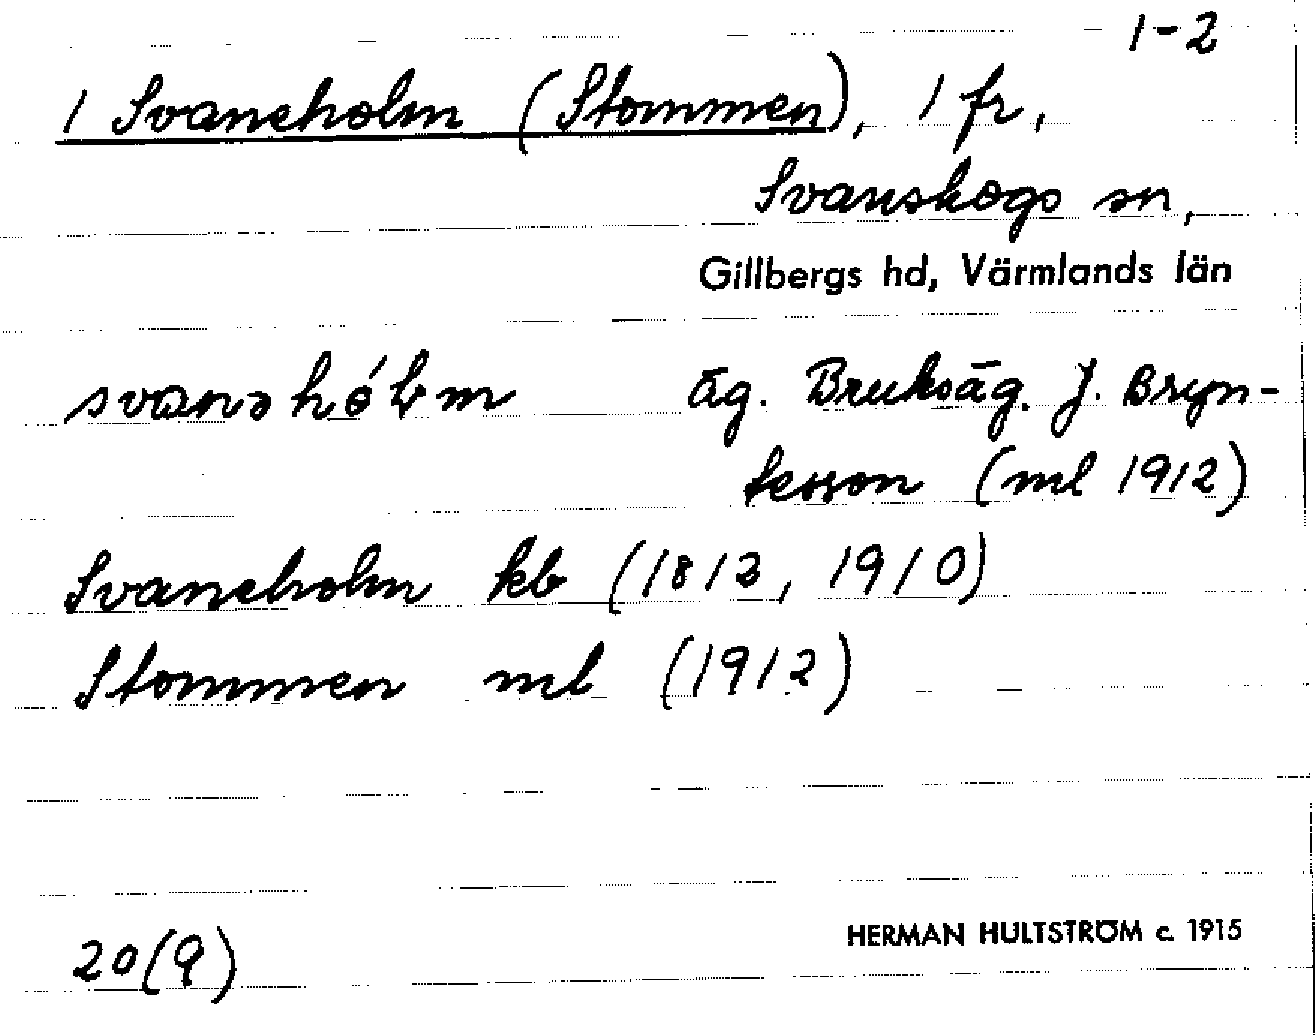 1-2
1 Svaneholm (Stommen), 1 fr,
Svanskogs sn,
Gillbergs hd, Värmlands län
äg. Bruksäg. J. Bryn-
tesson (ml 1912)
Svaneholm kb (1812, 1910)
Stommen ml (1912)
HERMAN HULTSTRÖM c. 1915
20(9)